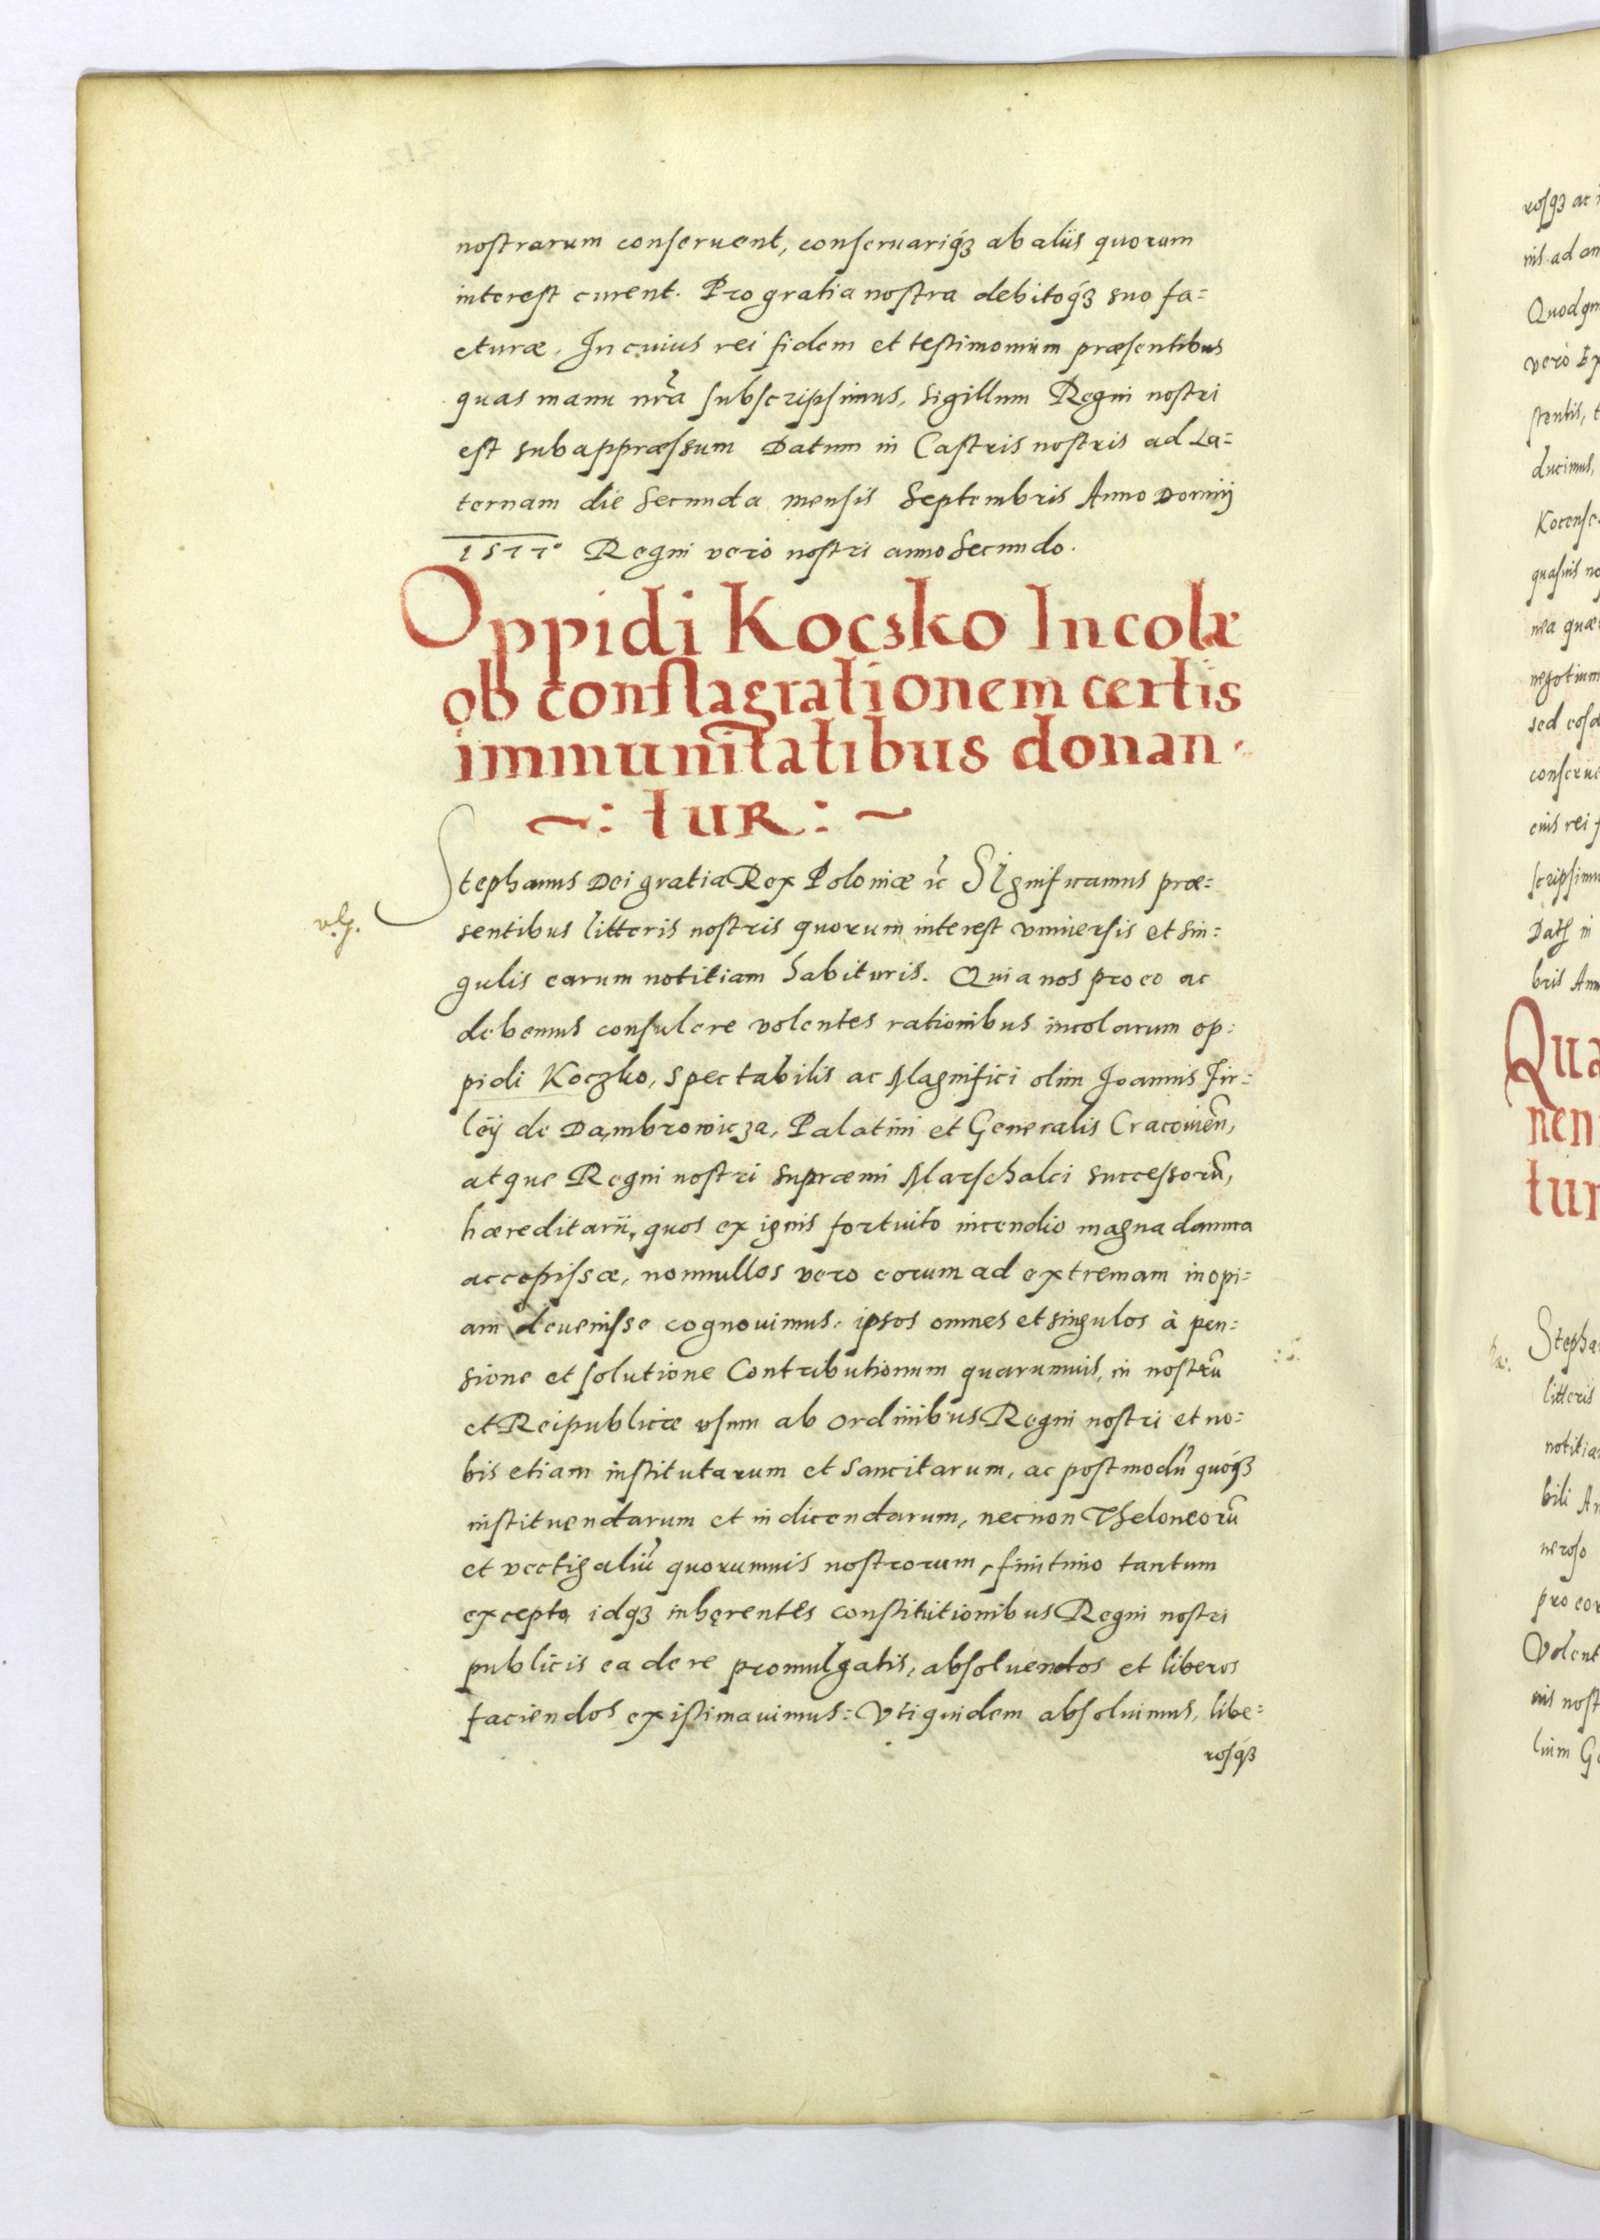 nostrarum conseruent, conseruariq́ʒ ab alijs quorum
interest curent. Pro gratia nostra debitoq́ʒ suo fa=
cturæ. In cuius rei fidem et testimonium præsentibus
quas manu nr̃a subscripsimus, sigillum Regni nostri
est subappræssum Datum in Castris nostris ad La=
ternam die Secunda mensis Septembris Anno Domini
1577° Regni verò nostri anno Secundo.
Oppidi Kocsko Incolæ
ob conflagrationem certis
immunitatibus donan
~: tur :~
Stephanus Dei gratia Rex Poloniæ ꝛc̃ Significamus præ=
sentibus litteris nostris quorum interest vniuersis et sin=
gulis earum notitiam habituris. Quia nos pro eo ac
debemus consulere volentes rationibus incolarum op:
pidi Koczko, spectabilis ac Magnifici olim Joannis Fir=
leÿ de Dambrowicza, Palatini et Generalis Cracouieñ,
atque Regni nostri supræmi Marschalci successorũ,
hæreditarii, quos ex ignis fortuito incendio magna damna
accepissæ, nonnullos vero eorum ad extremam inopi=
am deuenisse cognouimus, ipsos omnes et singulos à pen=
sione et solutione Contributionum quarumuis, in nostrũ
et Reipublicæ vsum ab ordinibus Regni nostri et no=
bis etiam institutarum et sancitarum, ac postmodũ quoq́ʒ
instituendarum et indicendarum, necnon Theloneorũ
et vectigaliũ quorumuis nostrorum, finitimo tantum
excepto idqʒ inhęrentes constitutionibus Regni nostri
publicis ea de re promulgatis, absoluendos et liberos
faciendos existimauimus: Vti quidem absoluimus, libe=
rosq́ʒ
rosqʒ ac
nis ad an
vero Ex
stentis,
ducimus,
Kocense
negotium
conserue
cuius rei f
scripsimu
bris Ann
Qua
nen
tur
Stepha
litteris
notitia
bili An
neroso
pro eor
Volent
nis nost